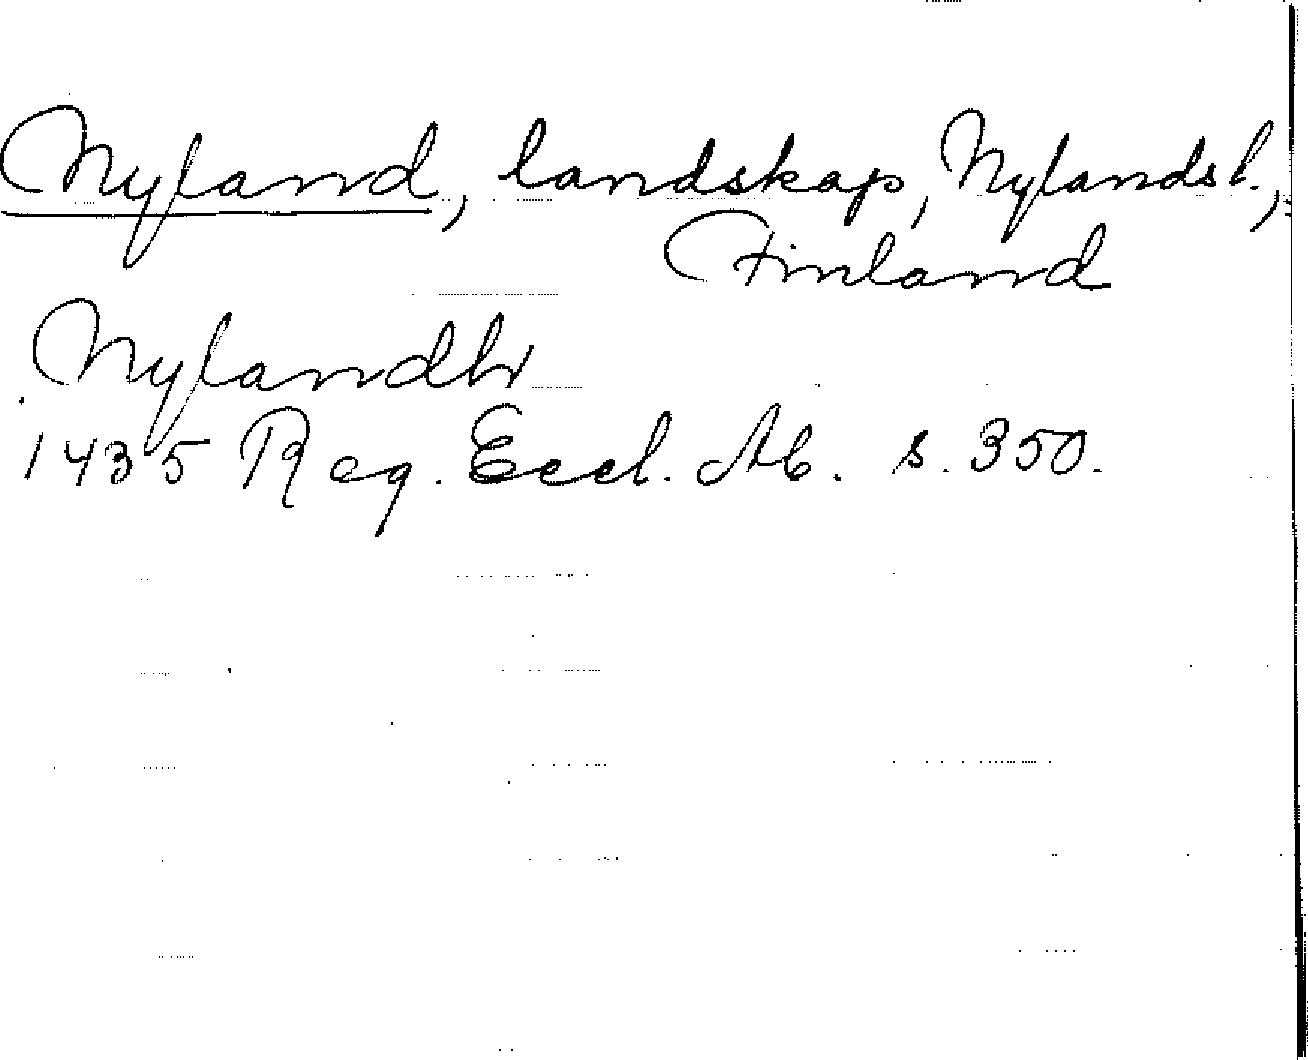 Nyland, landskap, Nylandsl.,
Finland
Nylandh
1435 Reg. Eccl. Ab. s. 350.